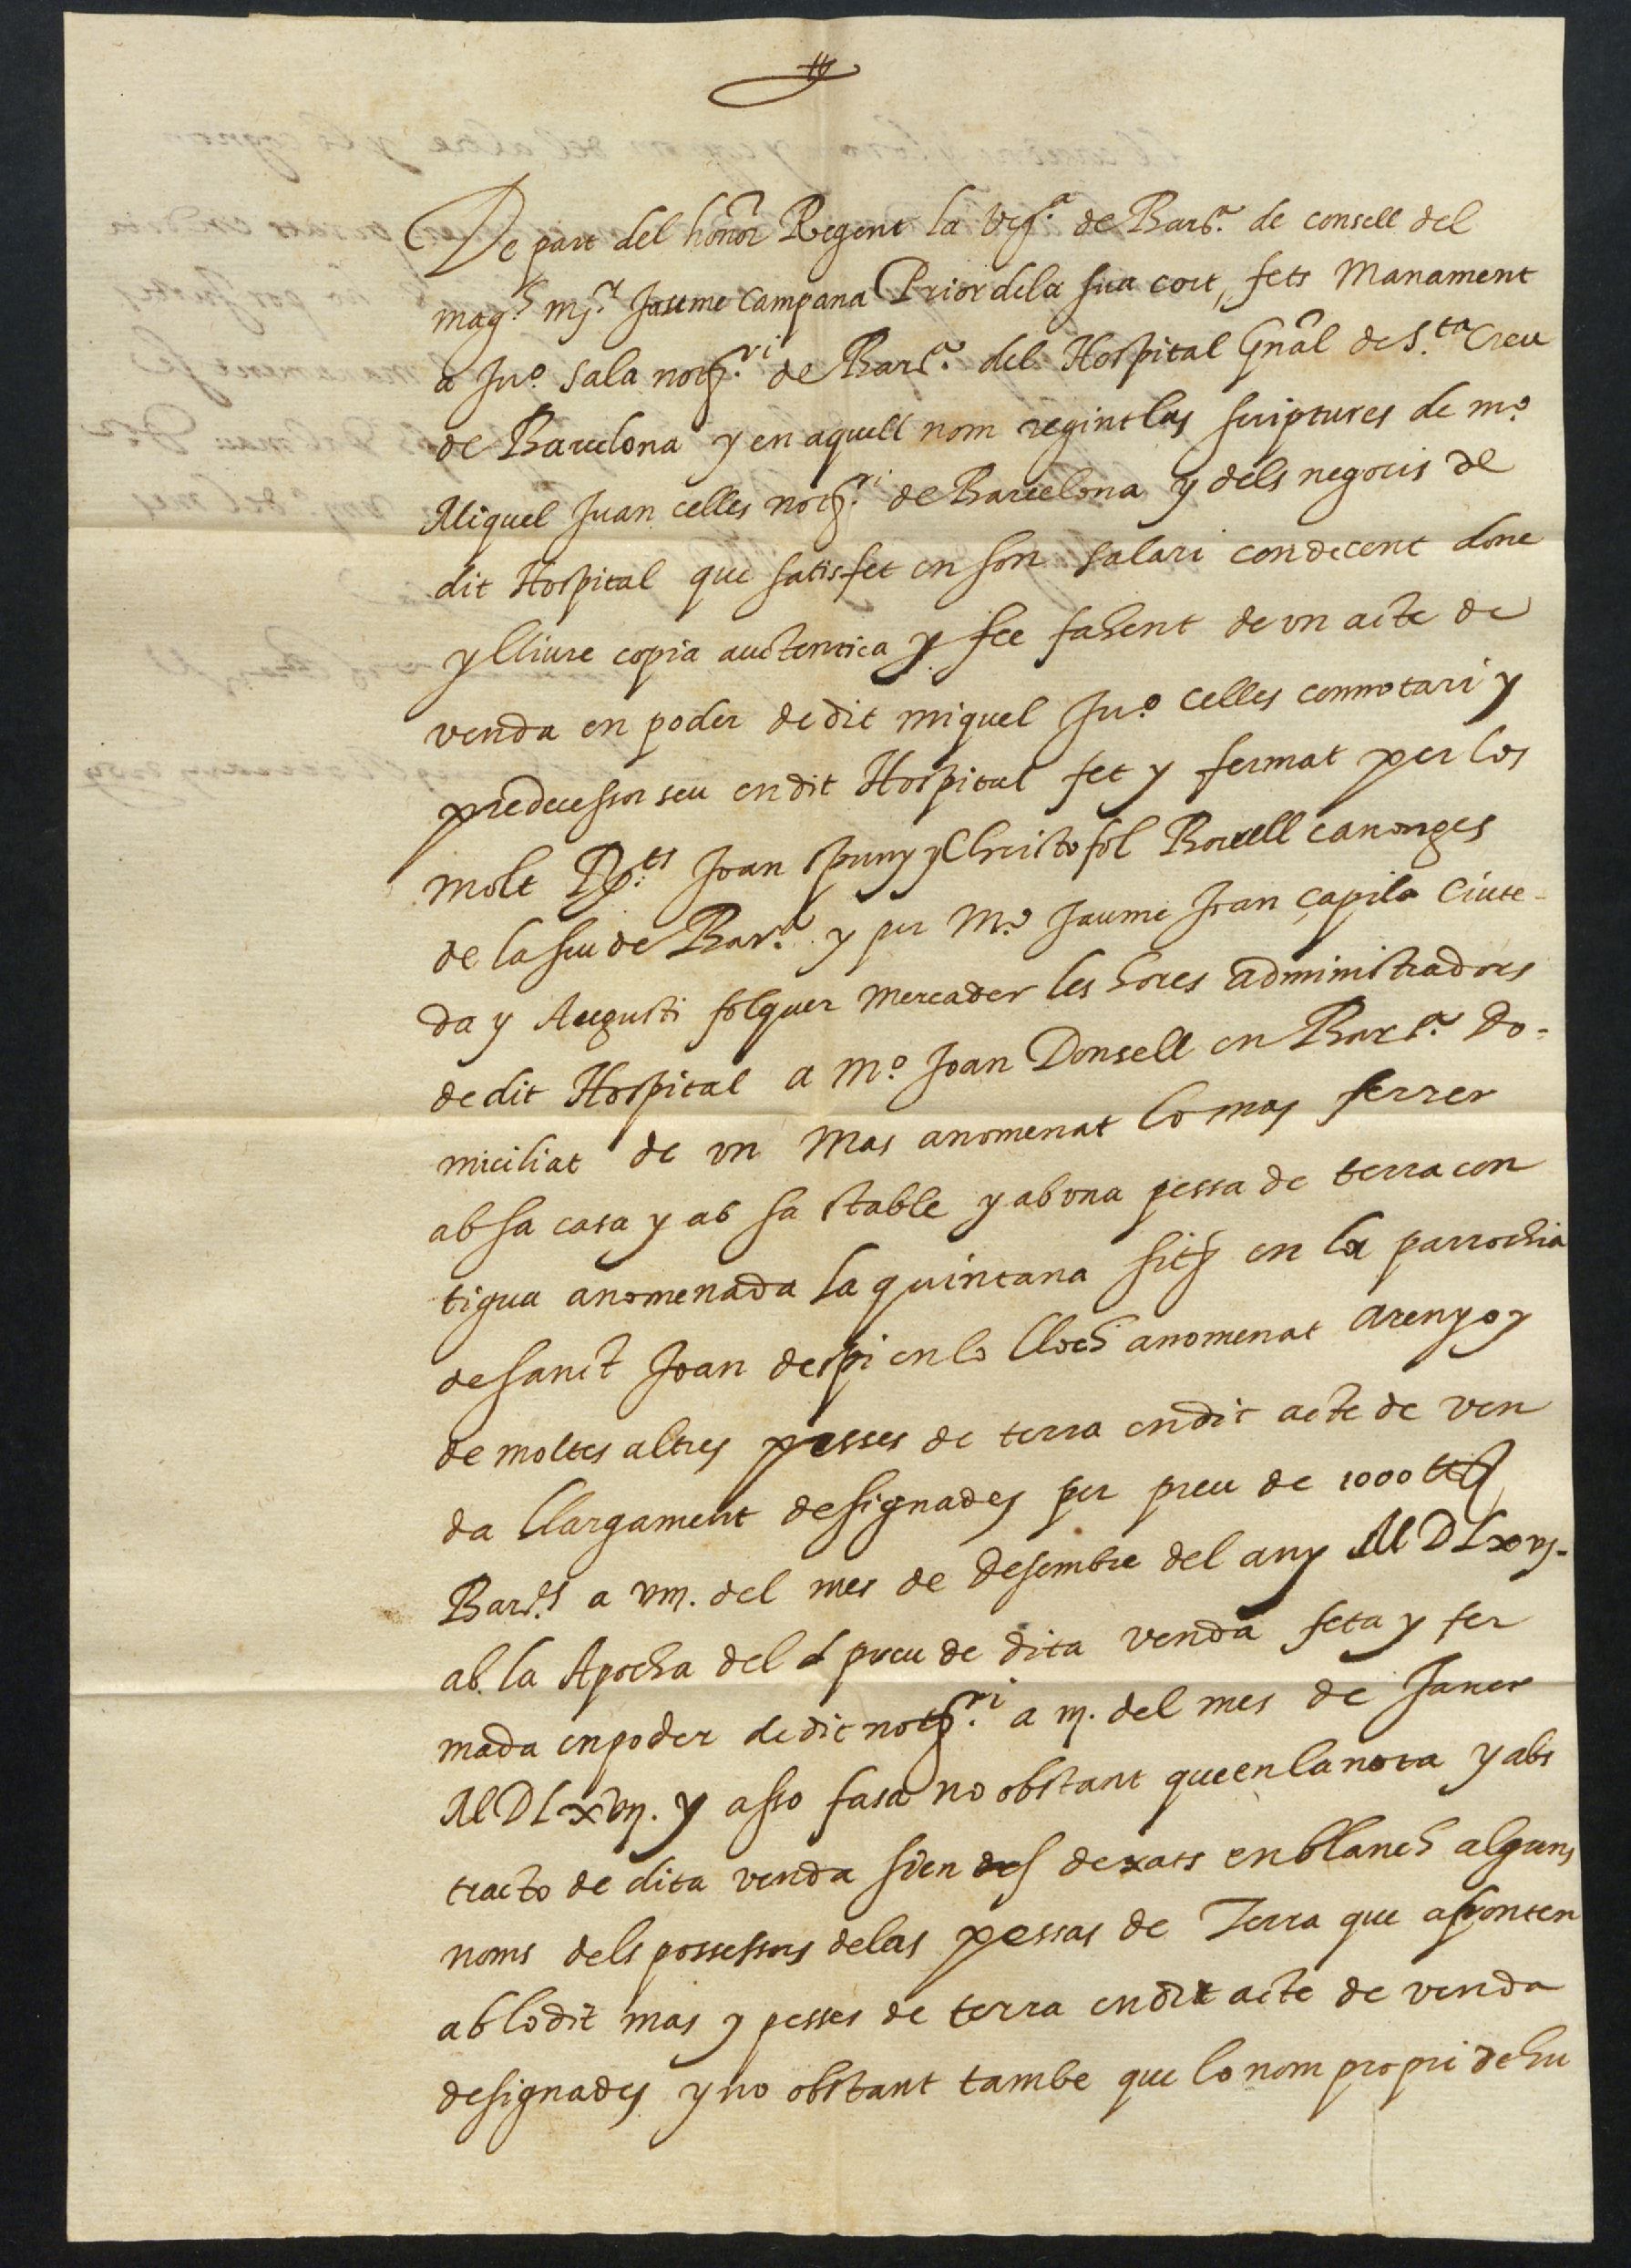 De part del honor Regent la Vegª de Barª de consell del
magch mjr Jaume Campana Prior dela sua cort, fets Manament
a Juº Sala notri de Barª del Hospital Gnâl de S.ta Creu
de Barcelona y en aquell nom regint las scriptures de mº
Miquel Juan celles notri de Barcelona y dels negocis de
dit Hospital que satisfet en son salari condecent done
y lliure copia auctentica y fee fahent de vn acte de
venda en poder de dit miquel Juº celles connotari y
predecessor seu en dit Hospital fet y fermat per los
molt Rts Joan spuny y Christofol Borrell canonges
de la seu de Barª y per Mº Jaume Joan çapila Ciute-
da y Augusti folquer Mercader les hores administradors
de dit Hospital a Mº Joan Donsell en Barª do-
miciliat de vn Mas anomenat lo mas ferrer
ab sa casa y ab sa stable y ab vna pessa de terra con
tigua anomenada la quintana sits en la parrochia
de sanct Joan despi en lo lloch anomenat arenyo y
de moltes altres pesses de terra en dit acte de ven
da llargament designades per preu de 1000 ll
Bar.s a viij. del mes de desembre del any MDLxvj.
ab la Apocha del preu de dita venda feta y fer
mada en poder de dit notri a iij. del mes de Janer
MDLxvij. y asso fasa no obstant que en la nota y abs
tracto de dita venda sien dexats en blanch alguns
noms dels possessors delas pessas de Terra que afronten
ab lo dit mas y pesses de terra en dit acte de venda
designades y no obstant tambe que lo nom propri de hu